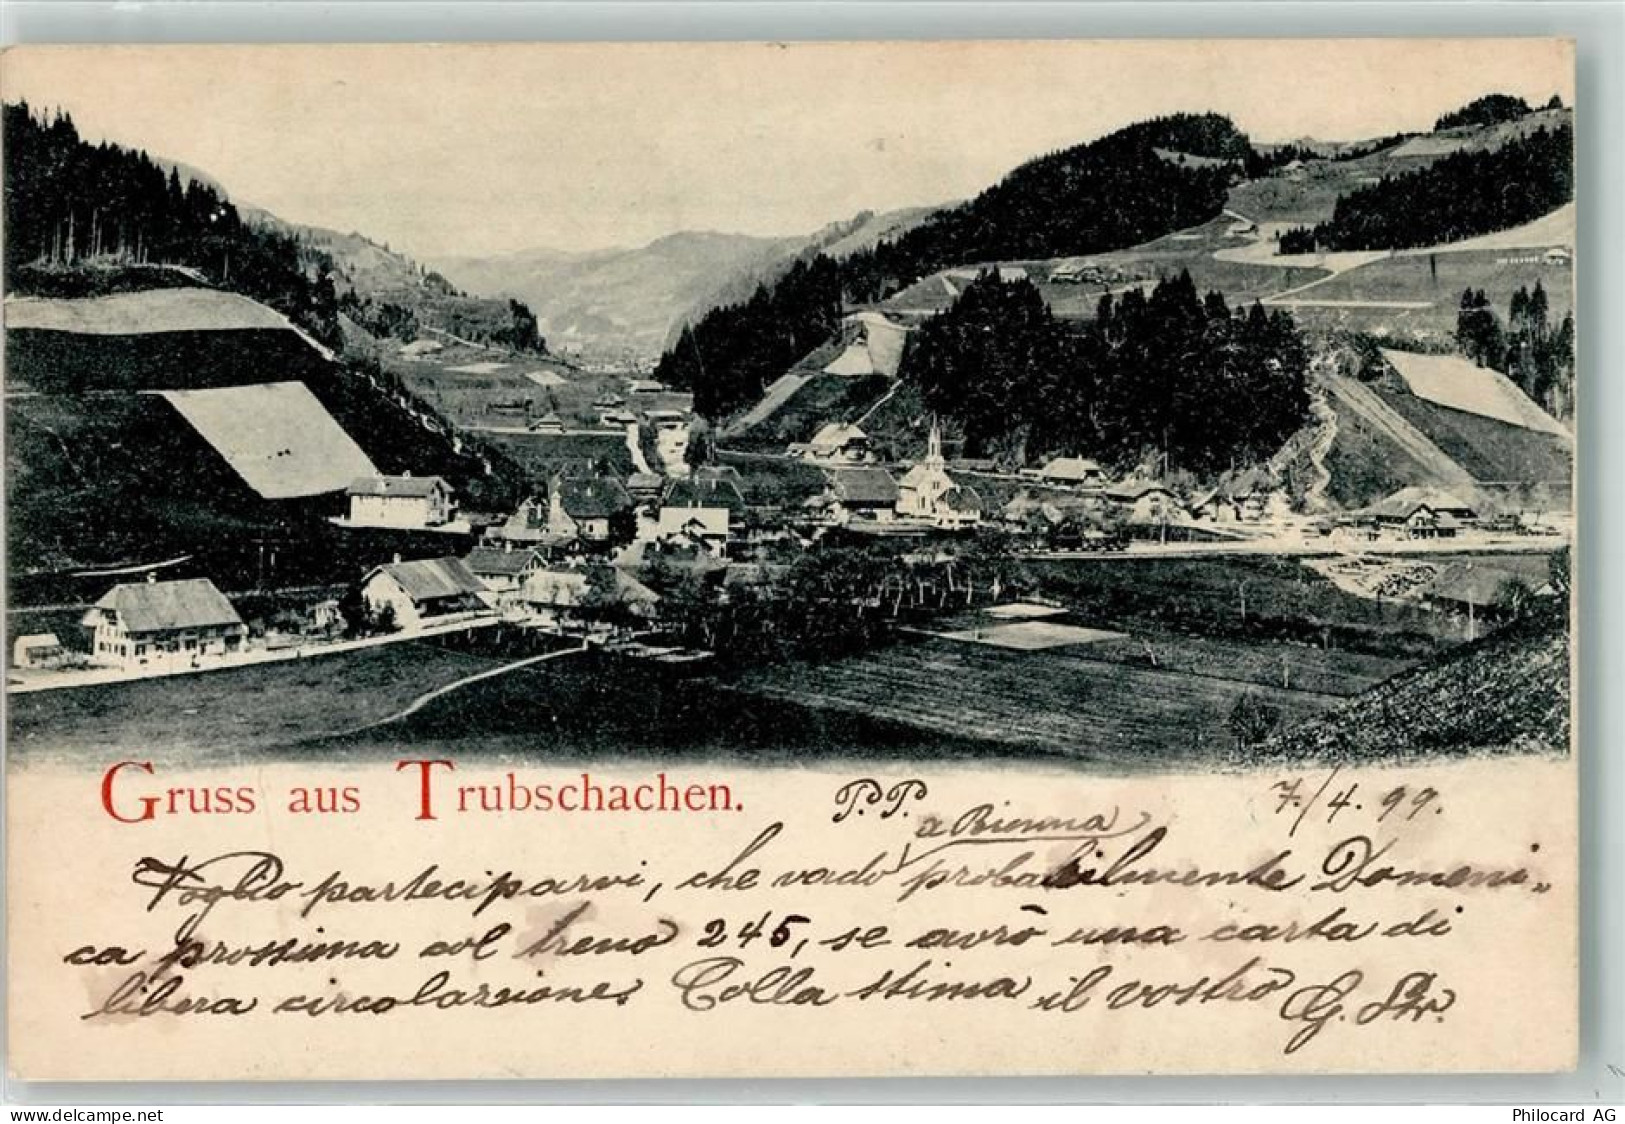 Gruss aus Trubschachen.
P.P.
7./4. 99.
a Bienna
Voglio parteciparvi, che vado probabilmente Domeni„
ca prossima col treno 245, se avrò una carta di
libera circolazione. Colla stima il vostro G. Str.
delcampe.net
Philocard AG